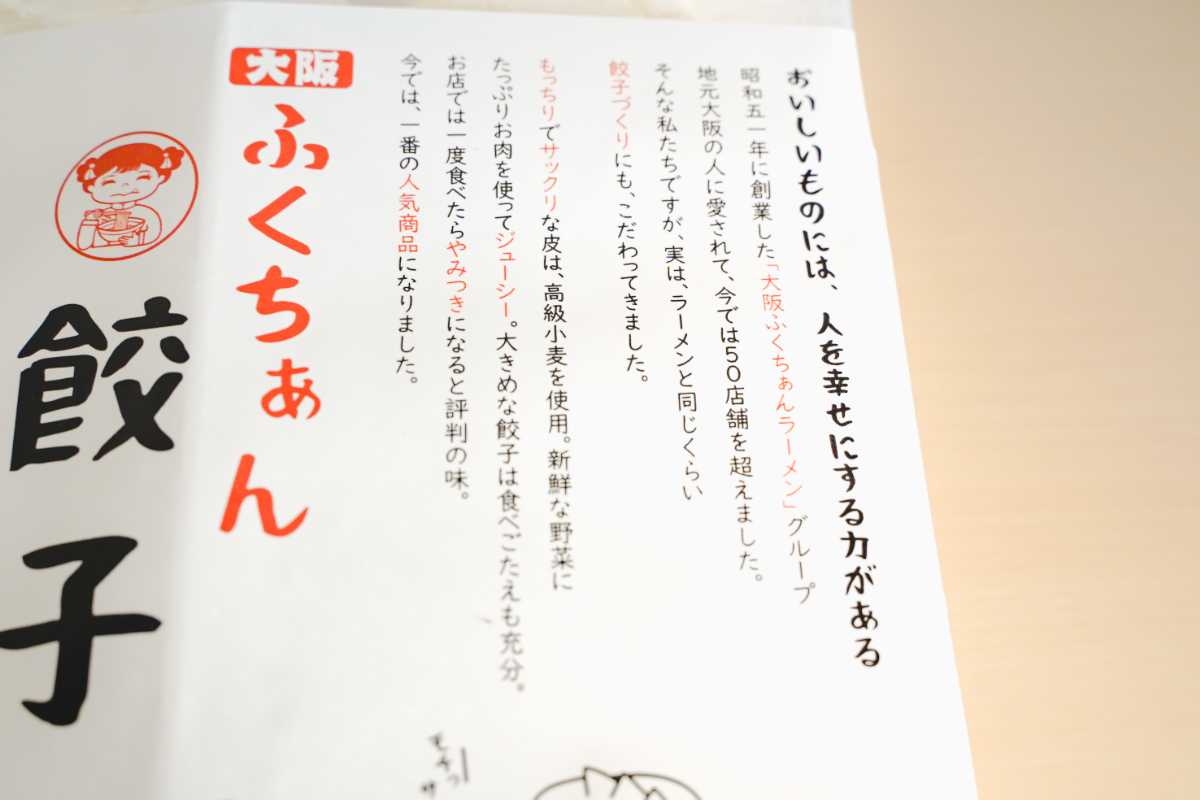 おいしいものには、人を幸せにする力がある
昭和五一年に創業した「大阪ふくちぁんラーメン」グループ
地元大阪の人に愛されて、今では50店舗を超えました。
そんな私たちですが、実は、ラーメンと同じくらい
餃子づくりにも、こだわってきました。
もっちりでサックリな皮は、高級小麦を使用。新鮮な野菜に
たっぷりお肉を使ってジューシー。大きめな餃子は食べごたえも充分。
お店では一度食べたらやみつきになると評判の味。
今では、一番の人気商品になりました。
大阪
ふくちぁん
餃子
モチっ
サ